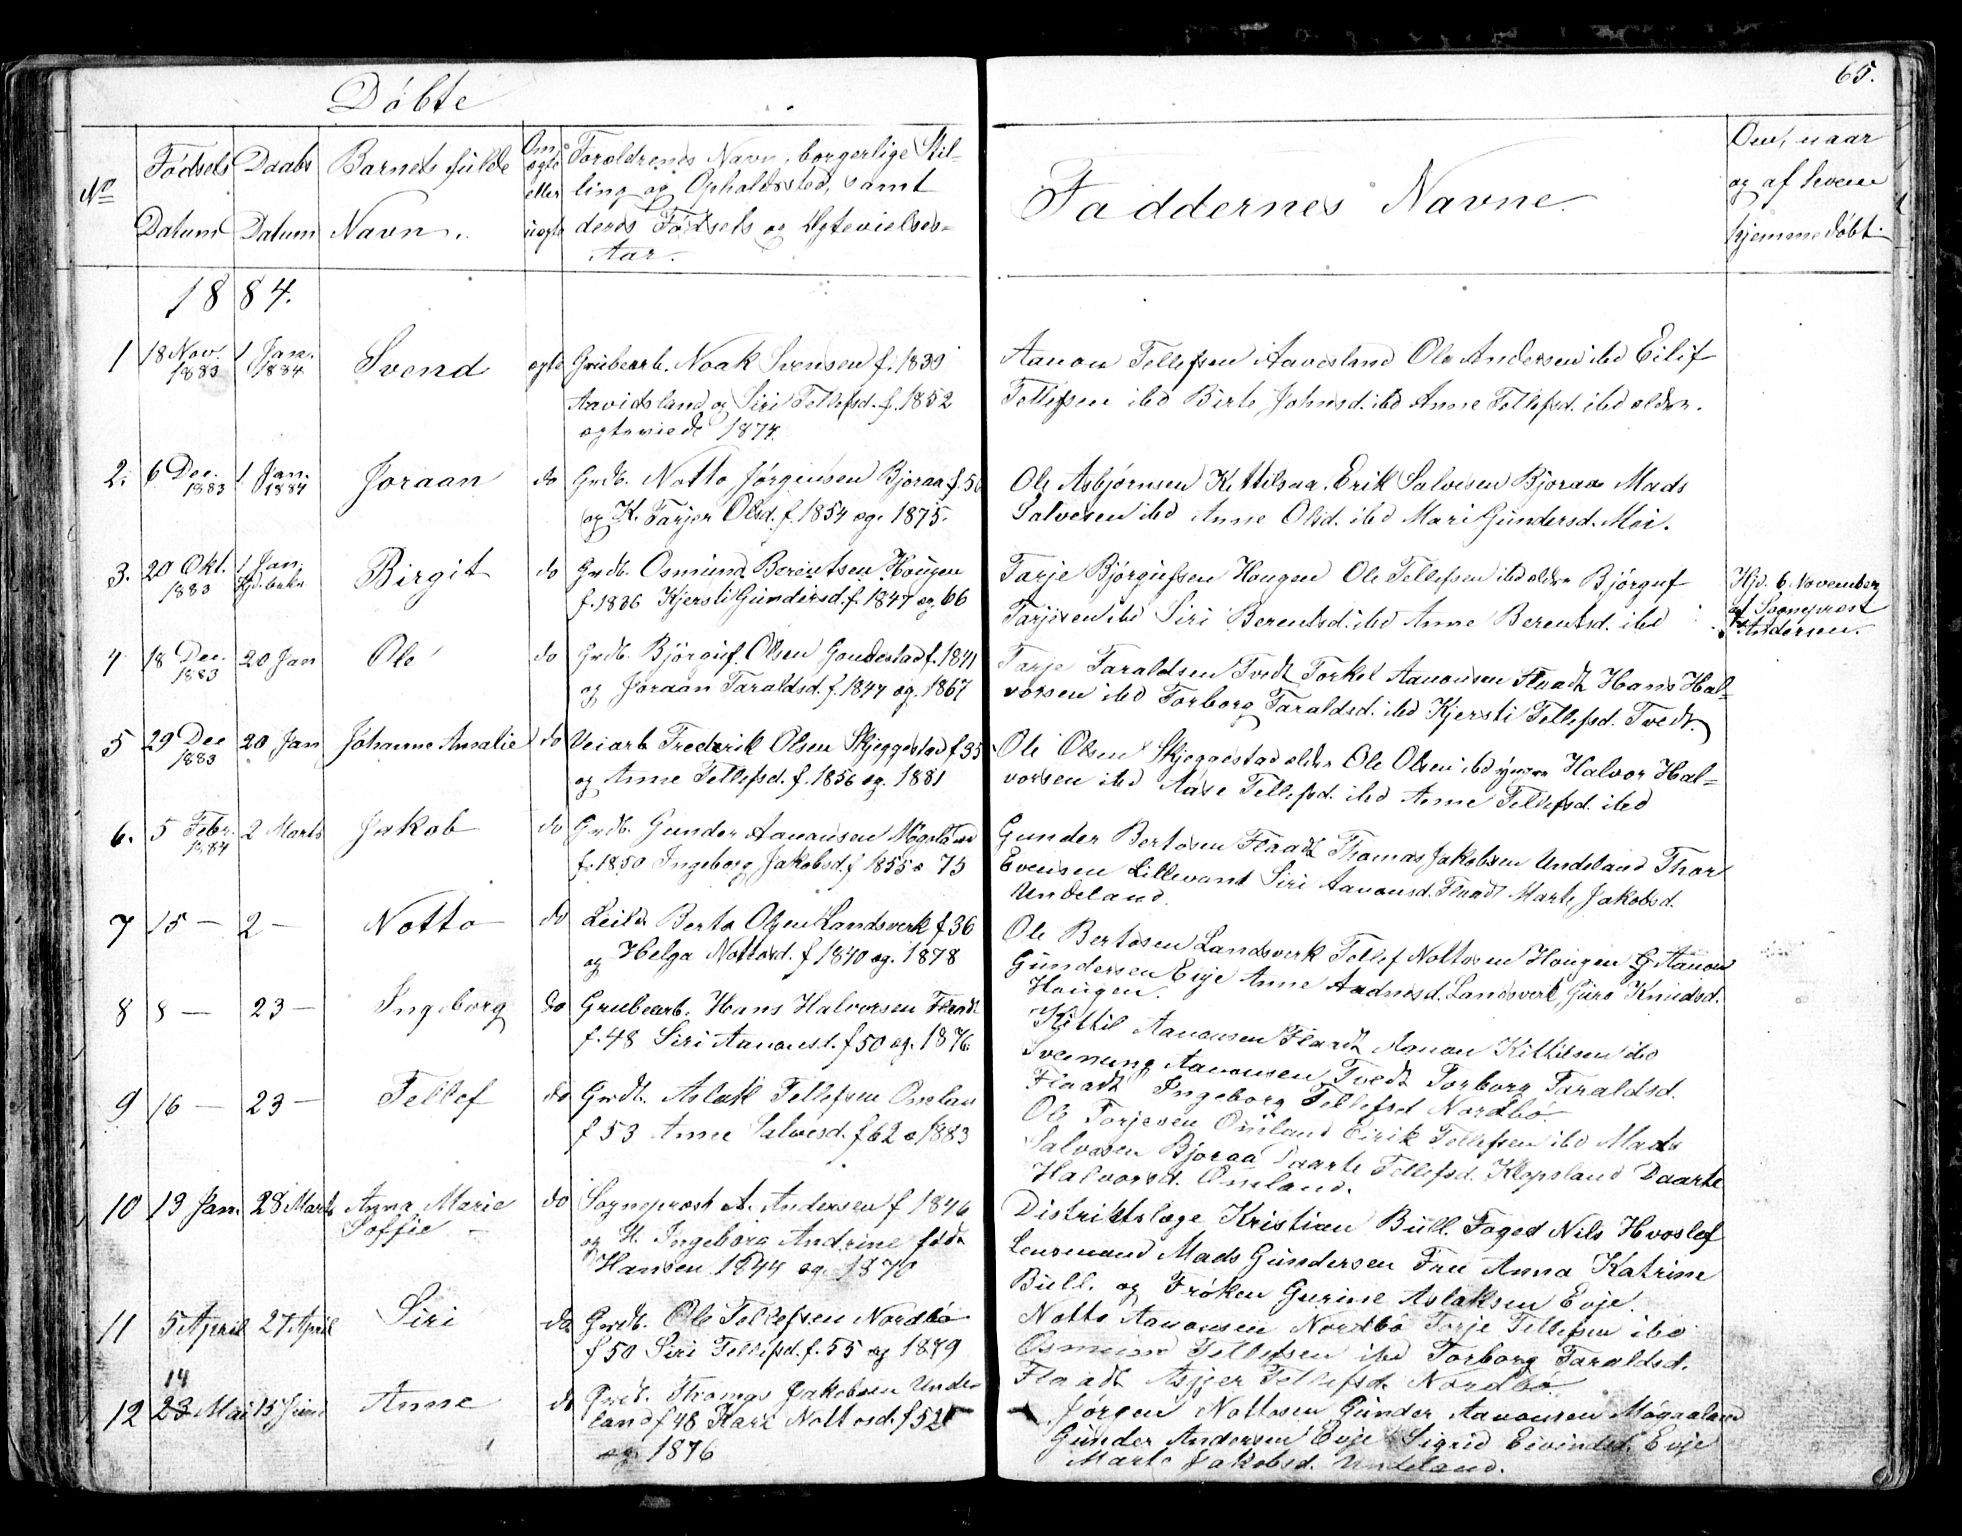 65.
Döbte
No
Födsels
Datum
Daabs
Datum
Barnets fulde
Navn.
Om
ægte
eller
uægte
Forældrenes Navn, borgerlige Stil-
ling og Opholdssted, samt
deres Födsels og Ægtevielses-
Aar.
Faddernes Navne.
Om, naar
og af hvem
hjemmedöbt.
1884.
1 18 Nov. 1883 1 Jan. 1884 Svend ægte Grubearb. Noak Svensen f. 1839
Aavidsland og Siri Tellefsd. f. 1852
ægteviede 1874
Aanon Tellefsen Aavidsland Ole Andersen ibd Eilif
Tellefsen ibd Birte Johnsd. ibd Anne Tellefsd. ibd ældre.
2. 6 Dec. 1883 1 Jan. 1884 Joraan do Grdb. Notto Jörgensen Bjoraa f. 50
og K. Tarjer Olsd. f. 1854 æg. 1875.
Ole Asbjörnsen Kittilsaa. Erik Salvesen Bjoraa Mads
Salvesen ibd Anne Olsd. ibd Mari Gundersd. Moi.
3. 20 Okt. 1883 1 Jan. Hjd. bekr. Birgit do Grdb. Osmund Berentsen Hougen
f. 1836 Kjersti Gundersd. f. 1847 æg. 66
Tarje Björgufsen Hougen Ole Tellefsen ibd ældre Björguf
Tarjesen ibd Siri Berentsd. ibd Anne Berentsd. ibd
Hjd. 6. November
af Sogneprest
Andersen.
4 18 Dec. 1883 20 Jan Ole do Grdb. Björguf Olsen Gaudestad f. 1841
og Joraan Taraldsd. f. 1847 æg. 1867
Tarje Taraldsen Tvedt Torkel Aanonsen Flaadt Hans Hal-
vorsen ibd Torborg Taraldsd. ibd Kjersti Tellefsd. Tvedt
5 29 Dec 1883 20 Jan Johanne Amalie do Veiarb Frederik Olsen Skjeggestad f 35
og Anne Tellefsd. f. 1856 æg. 1881
Ole Olsen Skjeggestad ældre Ole Olsen ibd yngre Halvor Hal-
vorsen ibd Aase Tellefsd. ibd Anne Tellefsd. ibd
6. 5 Febr. 1884 2 Marts Jakob do Grdb. Gunder Aanonsen Mögeland
f. 1850 Ingeborg Jakobsd. f 1855 æ 75
Gunder Bertosen Flaadt Thomas Jakobsen Undeland Thor
Evensen Lillevand Siri Aanonsd. Flaadt Marte Jakobsd.
Undeland.
7 15 — 2 — Notto do Leild. Berto Olsen Landsverk f 36
og Helga Nottosd. f 1840 æg. 1878
Ole Bertosen Landsverk Tellef Nottosen Hougen Aanon
Gundersen Evje Anne Aadnesd. Landsverk Guro Knudsd.
Hougen.
8 8 — 23 — Ingeborg do Grubearb. Hans Halvorsen Flaadt
f. 48 Siri Aanonsd. f 50 æg. 1876
Kittil Aanonsen Flaadt Aanon Kittilsen ibd
Sveinung Aanonsen Tvedt Torborg Taraldsd.
Flaadt Ingeborg Tellefsd Nordbö
9 16 — 23 — Tellef do Grdb. Aslak Tellefsen Omlan
f 53 Anne Salvesd. f 62 æ 1883
Ole Tarjesen Omland Eirik Tellefsen ibd Mads
Salvesen Bjoraa Daarte Tellefsd. Klepsland Daarte
Halvorsd. Omland.
10 19 Jan. 28 Marts Anna Marie
Soffie do Sogneprest A. Andersen f 1846
og H. Ingeborg Andrine född
Hansen 1844 æg. 1870
Distriktslæge Kristian Bull. Foged Nils Hvoslef
Lensmand Mads Gundersen Fru Anna Katrine
Bull. og Fröken Gurine Aslaksen Evje.
11 5 April 27 April Siri do Grdb. Ole Tellefsen Nordbö
f 50 Siri Tellefsd. f. 55 æg 1879
Notto Aanonsen Nordbö Tarje Tellefsen ibd
Osmund Tellefsen ibd Torborg Taraldsd.
Flaadt Asjer Tellefsd. Nordbö
12 14 23 Mai 15 Juni Anne do Grdb. Thomas Jakobsen Unde-
land f 48 Kari Nottosd. f 52
æg. 1876
Jörgen Nottosen Gunder Aanonsen Mögaaland
Gunder Andersen Evje Sigrid Eivindsd. Evje
Marte Jakobsd. Undeland.